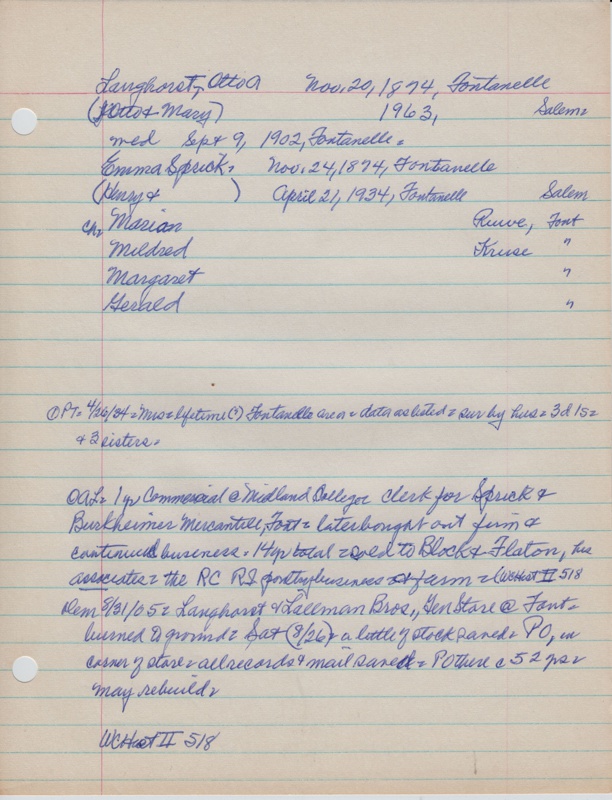 Langhorst, Otto A Nov. 20, 1874, Fontanelle
(Otto & Mary) 1963, Salem=
med Sept 9, 1902, Fontanelle=
Emma Sprick= Nov. 24, 1874, Fontanelle
(Henry & ) April 21, 1934, Fontanelle Salem
ch= Marian Ruwe, Font
Mildred Kruse "
Margaret "
Gerald "
PT= 4/26/34= Mrs= lifetime (?) Fontanelle area= data as listed= sur by hus= 3d 1s=
& 3 sisters=
OAL= 1 yr Commercial @ Midland College clerk for Sprick &
Burkheimer Mercantile, Font= later bought out firm &
continued business= 14 yr total= sold to Block & Flaton, his
associates= the RC RI business farm= WCHist II 518
Dem 8/31/05= Langhorst & Lallman Bros., Gen Store @ Font=
burned to ground= Sat (8/26)= a little of stock saved= PO, in
corner of store= all records & mail saved= PO there c 52 yrs=
may rebuild=
WCHist II 518